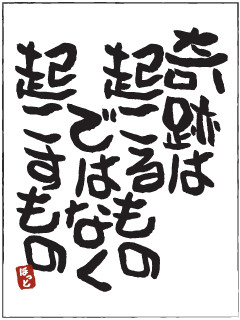 奇跡は
起こるもの
ではなく
起こすもの
ほっと